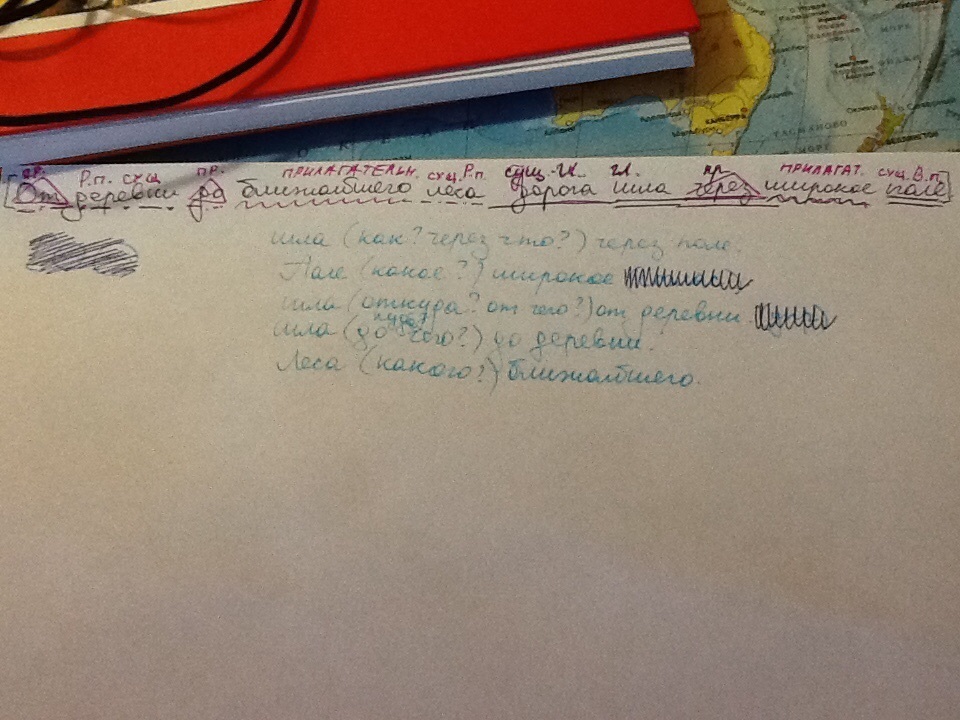 пр. Р.п. сущ пр. ПРИЛАГАТЕЛЬН. сущ.Р.п. сущ. гл. пр ПРИЛАГАТ. сущ.В.п.
От деревни до ближайшего леса дорога шла через широкое поле
шла (как? через что?) через поле.
Поле (какое?) широкое
шла (откуда? от чего?) от деревни
куда?
шла (до чего?) до деревни.
Леса (какого?) ближайшего.